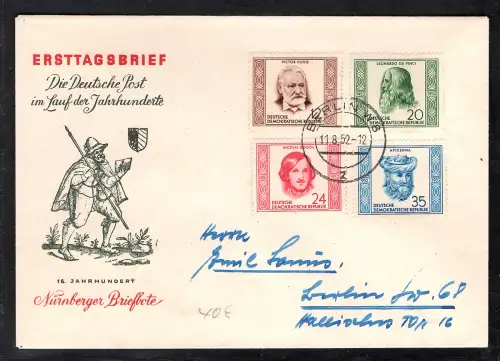 ERSTTAGSBRIEF
Die Deutsche Post
im Lauf der Jahrhunderte
16. JAHRHUNDERT
Nürnberger Briefbote
VICTOR HUGO
DEUTSCHE
DEMOKRATISCHE REPUBLIK
LEONARDO DA VINCI
20
DEUTSCHE
DEMOKRATISCHE REPUBLIK
BERLIN N8
11.8.52-12
z
NICOLAI GOGOL
24
DEUTSCHE
DEMOKRATISCHE REPUBLIK
AVICENNA
35
DEUTSCHE
DEMOKRATISCHE REPUBLIK
Herrn
Emil
Berlin SW. 68
16
40€